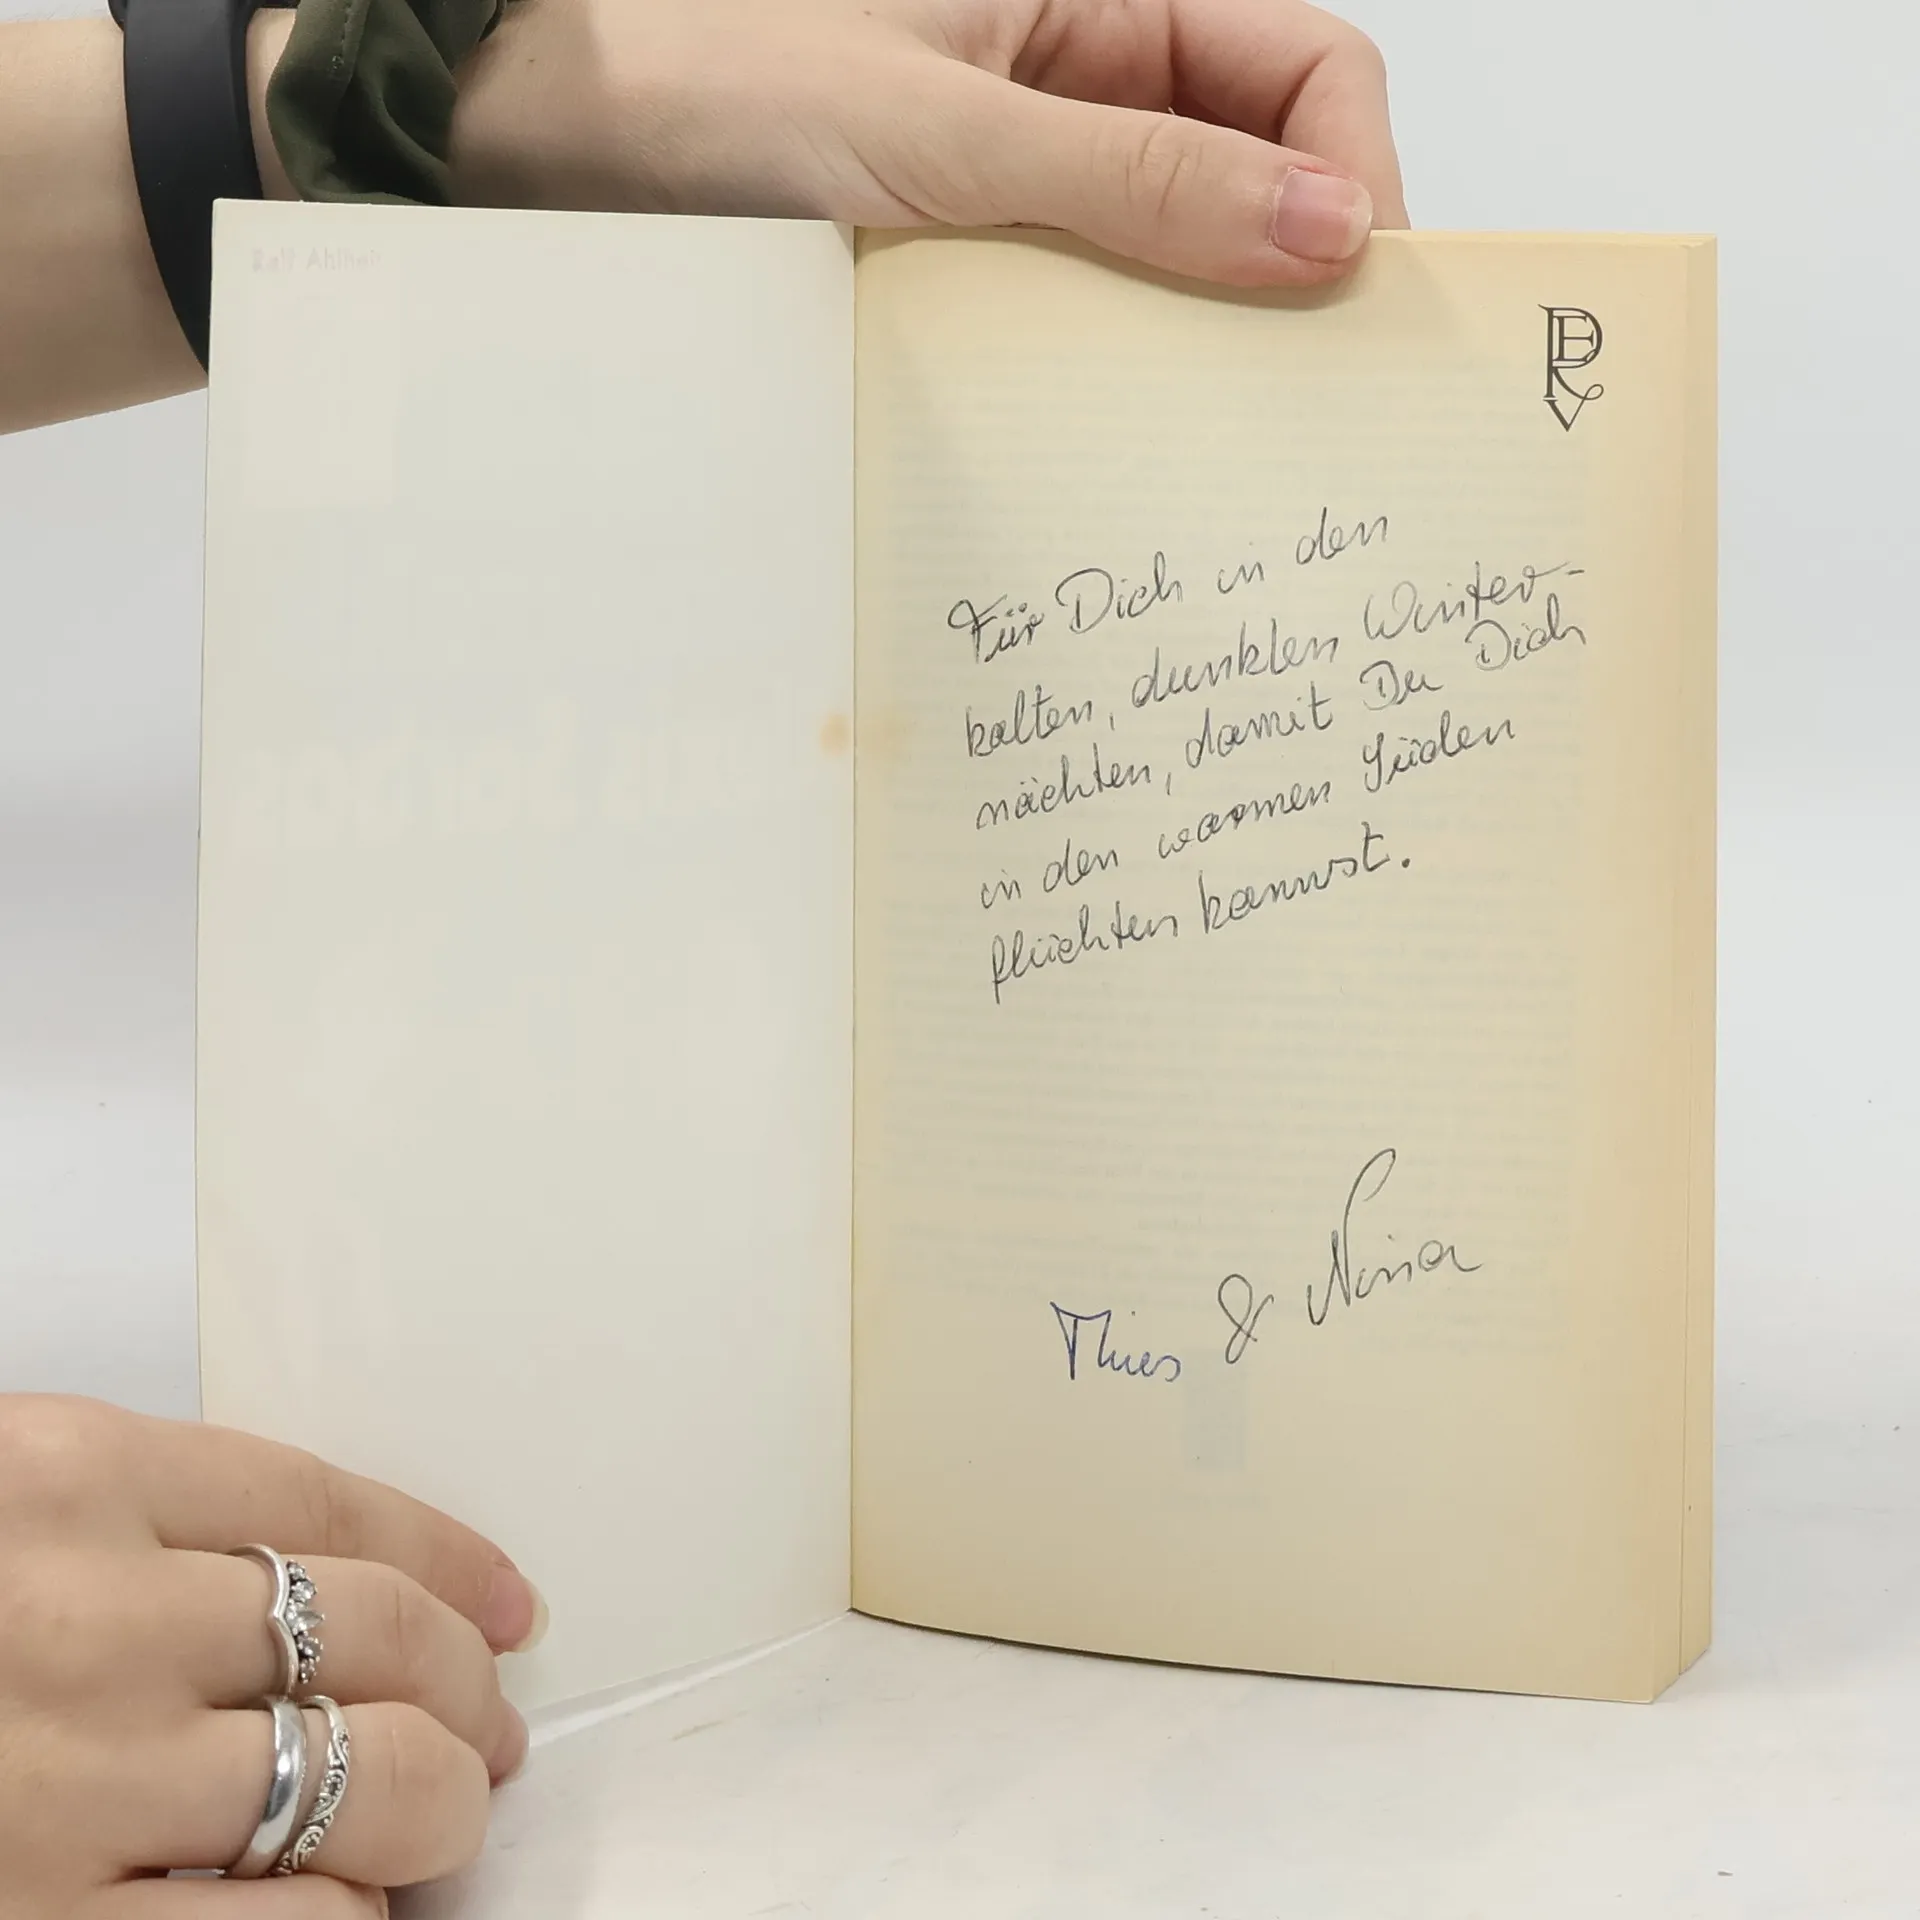 Für Dich in den
kalten, dunklen Winter-
nächten, damit Du Dich
in den warmen Süden
flüchten kannst.
Thies & Nina